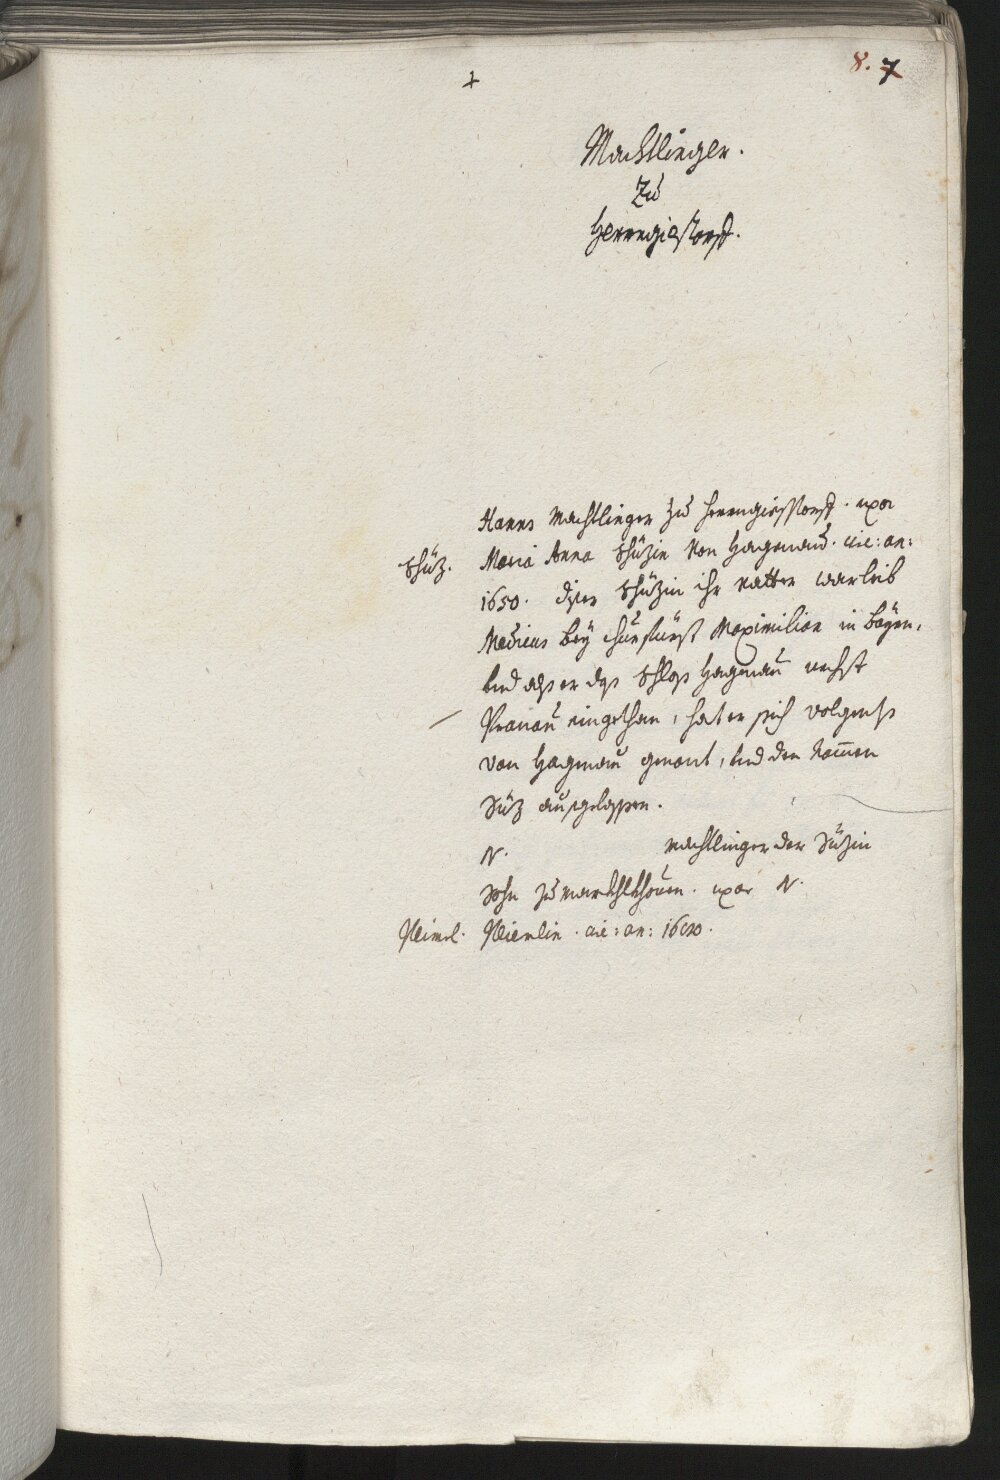 8. 7
Machtlinger.
Zu
Herrngierstorff.
Hanns Machtlinger zu Herrngierstorff. uxor
Schüz. Maria Anna Schüzin von Hagenau. vix: an:
1650. diser Schüzin ihr vatter war leib
Medicus bey Churfürst Maximilian in Bayrn,
und als er das Schloss Hagenau nechst
Pranau eingethan, hat er sich volgents
von Hagenau genent, und den Nammen
Süz ausgelassen.
N. Machtlinger der Süzin
Sohn zu uxor N.